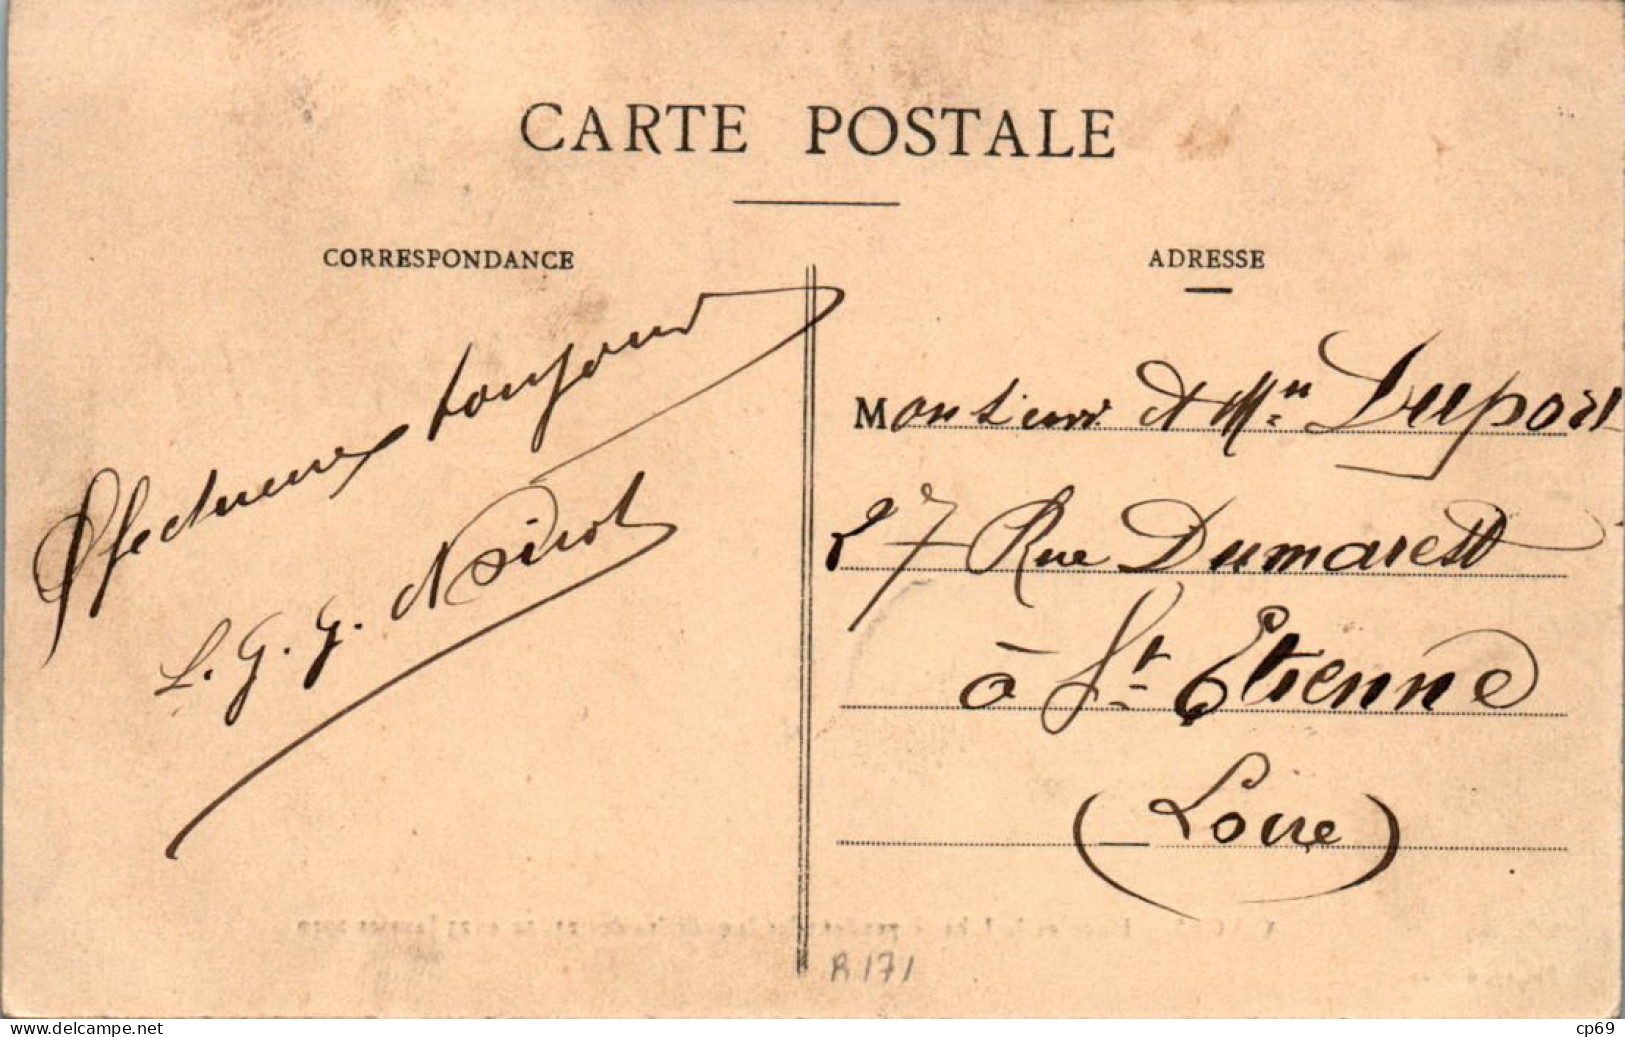 CARTE POSTALE
CORRESPONDANCE
ADRESSE
toujours
L. G. G.
Monsieur et Mme Duport
27 Rue Dumarest
à St Etienne
(Loire)
R171
www.delcampe.net
cp69